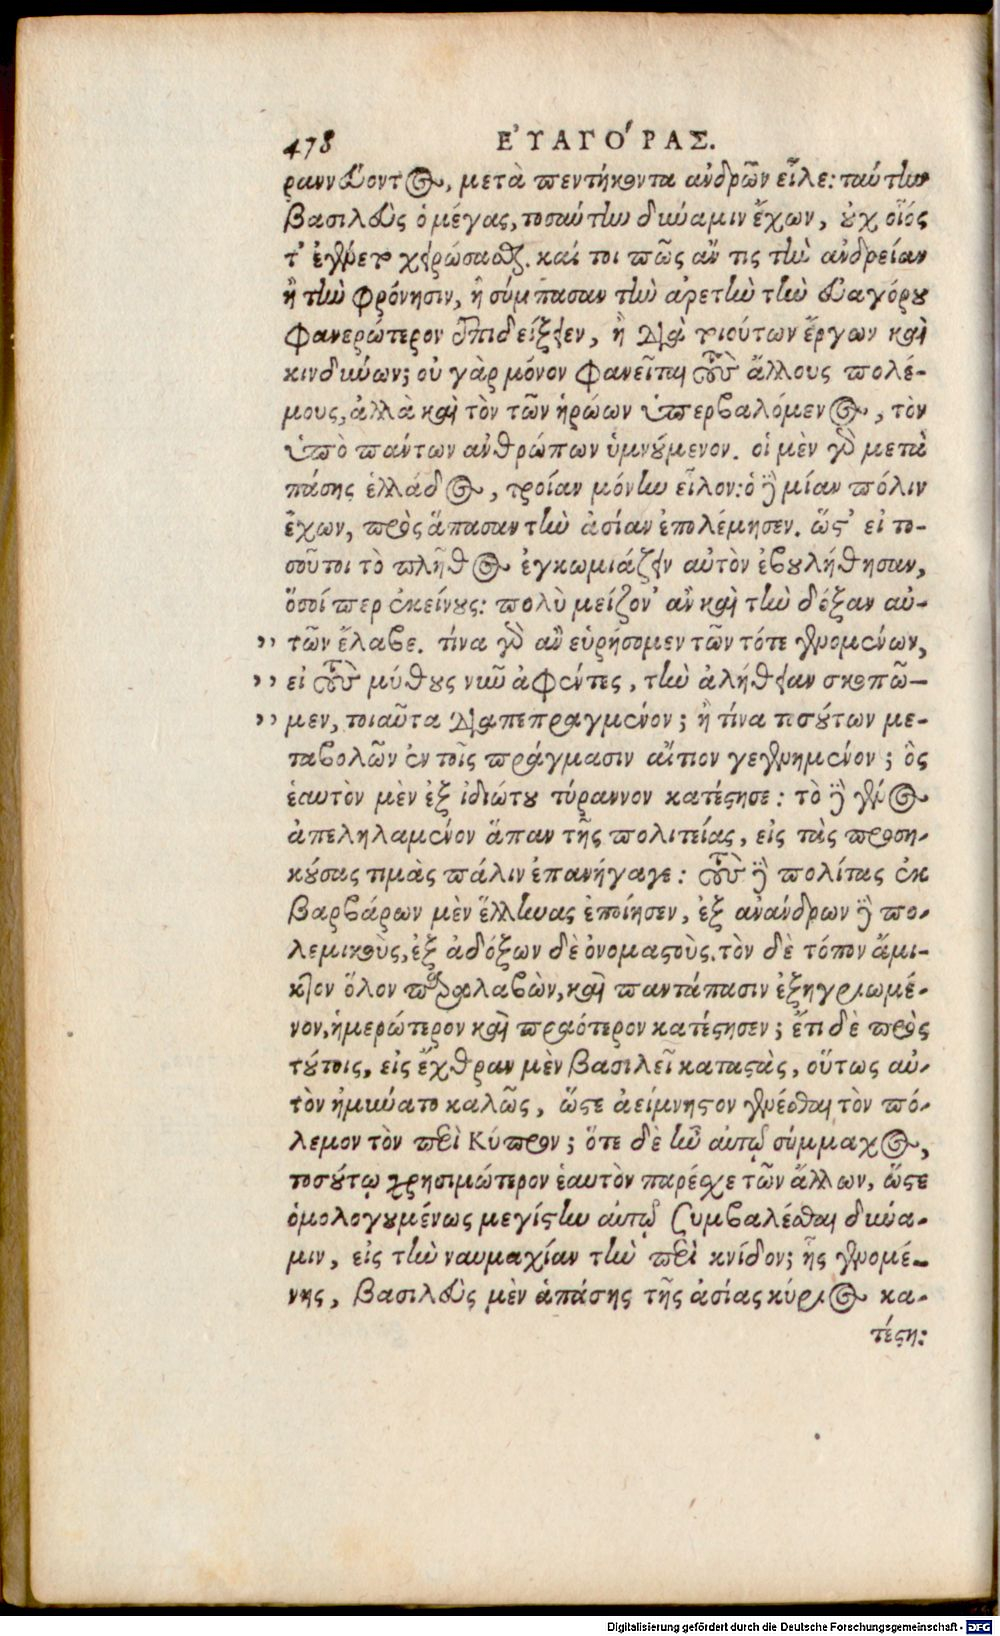 478 ΕὐΑΓΌΡΑΣ.
ραννεύοντος, μετὰ πεντήκοντα ἀνδρῶν εἷλε: ταύτην
βασιλεὺς ὁ μέγας, τοσαύτην δύναμιν ἔχων, οὐχ οἷός
τ' ἐγένετο χειρώσασθαι. καί τοι πῶς ἄν τις τὴν ἀνδρείαν
ἢ τὴν φρόνησιν, ἢ σύμπασαν τὴν ἀρετὴν τὴν Εὐαγόρου
φανερώτερον ἐπιδείξειεν, ἢ διὰ τοιούτων ἔργων καὶ
κινδύνων; οὐ γὰρ μόνον φανεῖται τοὺς ἄλλους πολέ-
μους, ἀλλὰ καὶ τὸν τῶν ἡρώων ὑπερβαλόμενος, τὸν
ὑπὸ πάντων ἀνθρώπων ὑμνούμενον. οἱ μὲν γὰρ μετὰ
πάσης ἑλλάδος, τροίαν μόνην εἷλον: ὁ δὲ μίαν πόλιν
ἔχων, πρὸς ἅπασαν τὴν ἀσίαν ἐπολέμησεν. ὥστ' εἰ το-
σοῦτοι τὸ πλῆθος ἐγκωμιάζειν αὐτὸν ἐβουλήθησαν,
ὅσοί περ ἐκείνους: πολὺ μείζον' ἂν καὶ τὴν δόξαν αὐ-
,, τῶν ἔλαβε. τίνα γὰρ ἂν εὑρήσομεν τῶν τότε γενομένων,
,, εἰ τοὺς μύθους νῦν ἀφέντες, τὴν ἀλήθειαν σκοπῶ-
,, μεν, τοιαῦτα διαπεπραγμένον; ἢ τίνα τοσούτων με-
ταβολῶν ἐν τοῖς πράγμασιν αἴτιον γεγενημένον; ὃς
ἑαυτὸν μὲν ἐξ ἰδιώτου τύραννον κατέστησε: τὸ δὲ γένος
ἀπεληλαμένον ἅπαν τῆς πολιτείας, εἰς τὰς προση-
κούσας τιμὰς πάλιν ἐπανήγαγε: τοὺς δὲ πολίτας ἐκ
βαρβάρων μὲν ἕλληνας ἐποίησεν, ἐξ ἀνάνδρων δὲ πο-
λεμικοὺς, ἐξ ἀδόξων δὲ ὀνομαστούς. τὸν δὲ τόπον ἄμι-
κτον ὅλον παραλαβὼν, καὶ παντάπασιν ἐξηγριωμέ-
νον, ἡμερώτερον καὶ πραότερον κατέστησεν; ἔτι δὲ πρὸς
τούτοις, εἰς ἔχθραν μὲν βασιλεῖ καταστὰς, οὕτως αὐ-
τὸν ἠμύνατο καλῶς, ὥστε ἀείμνηστον γενέσθαι τὸν πό-
λεμον τὸν περὶ Κύπρον; ὅτε δὲ ἦν αὐτῷ σύμμαχος,
τοσούτῳ χρησιμώτερον ἑαυτὸν παρέσχε τῶν ἄλλων, ὥστε
ὁμολογουμένως μεγίστην αὐτῷ ξυμβαλέσθαι δύνα-
μιν, εἰς τὴν ναυμαχίαν τὴν περὶ κνίδον; ἧς γενομέ-
νης, βασιλεὺς μὲν ἁπάσης τῆς ἀσίας κύριος κα-
τέστη:
Digitalisierung gefördert durch die Deutsche Forschungsgemeinschaft - DFG